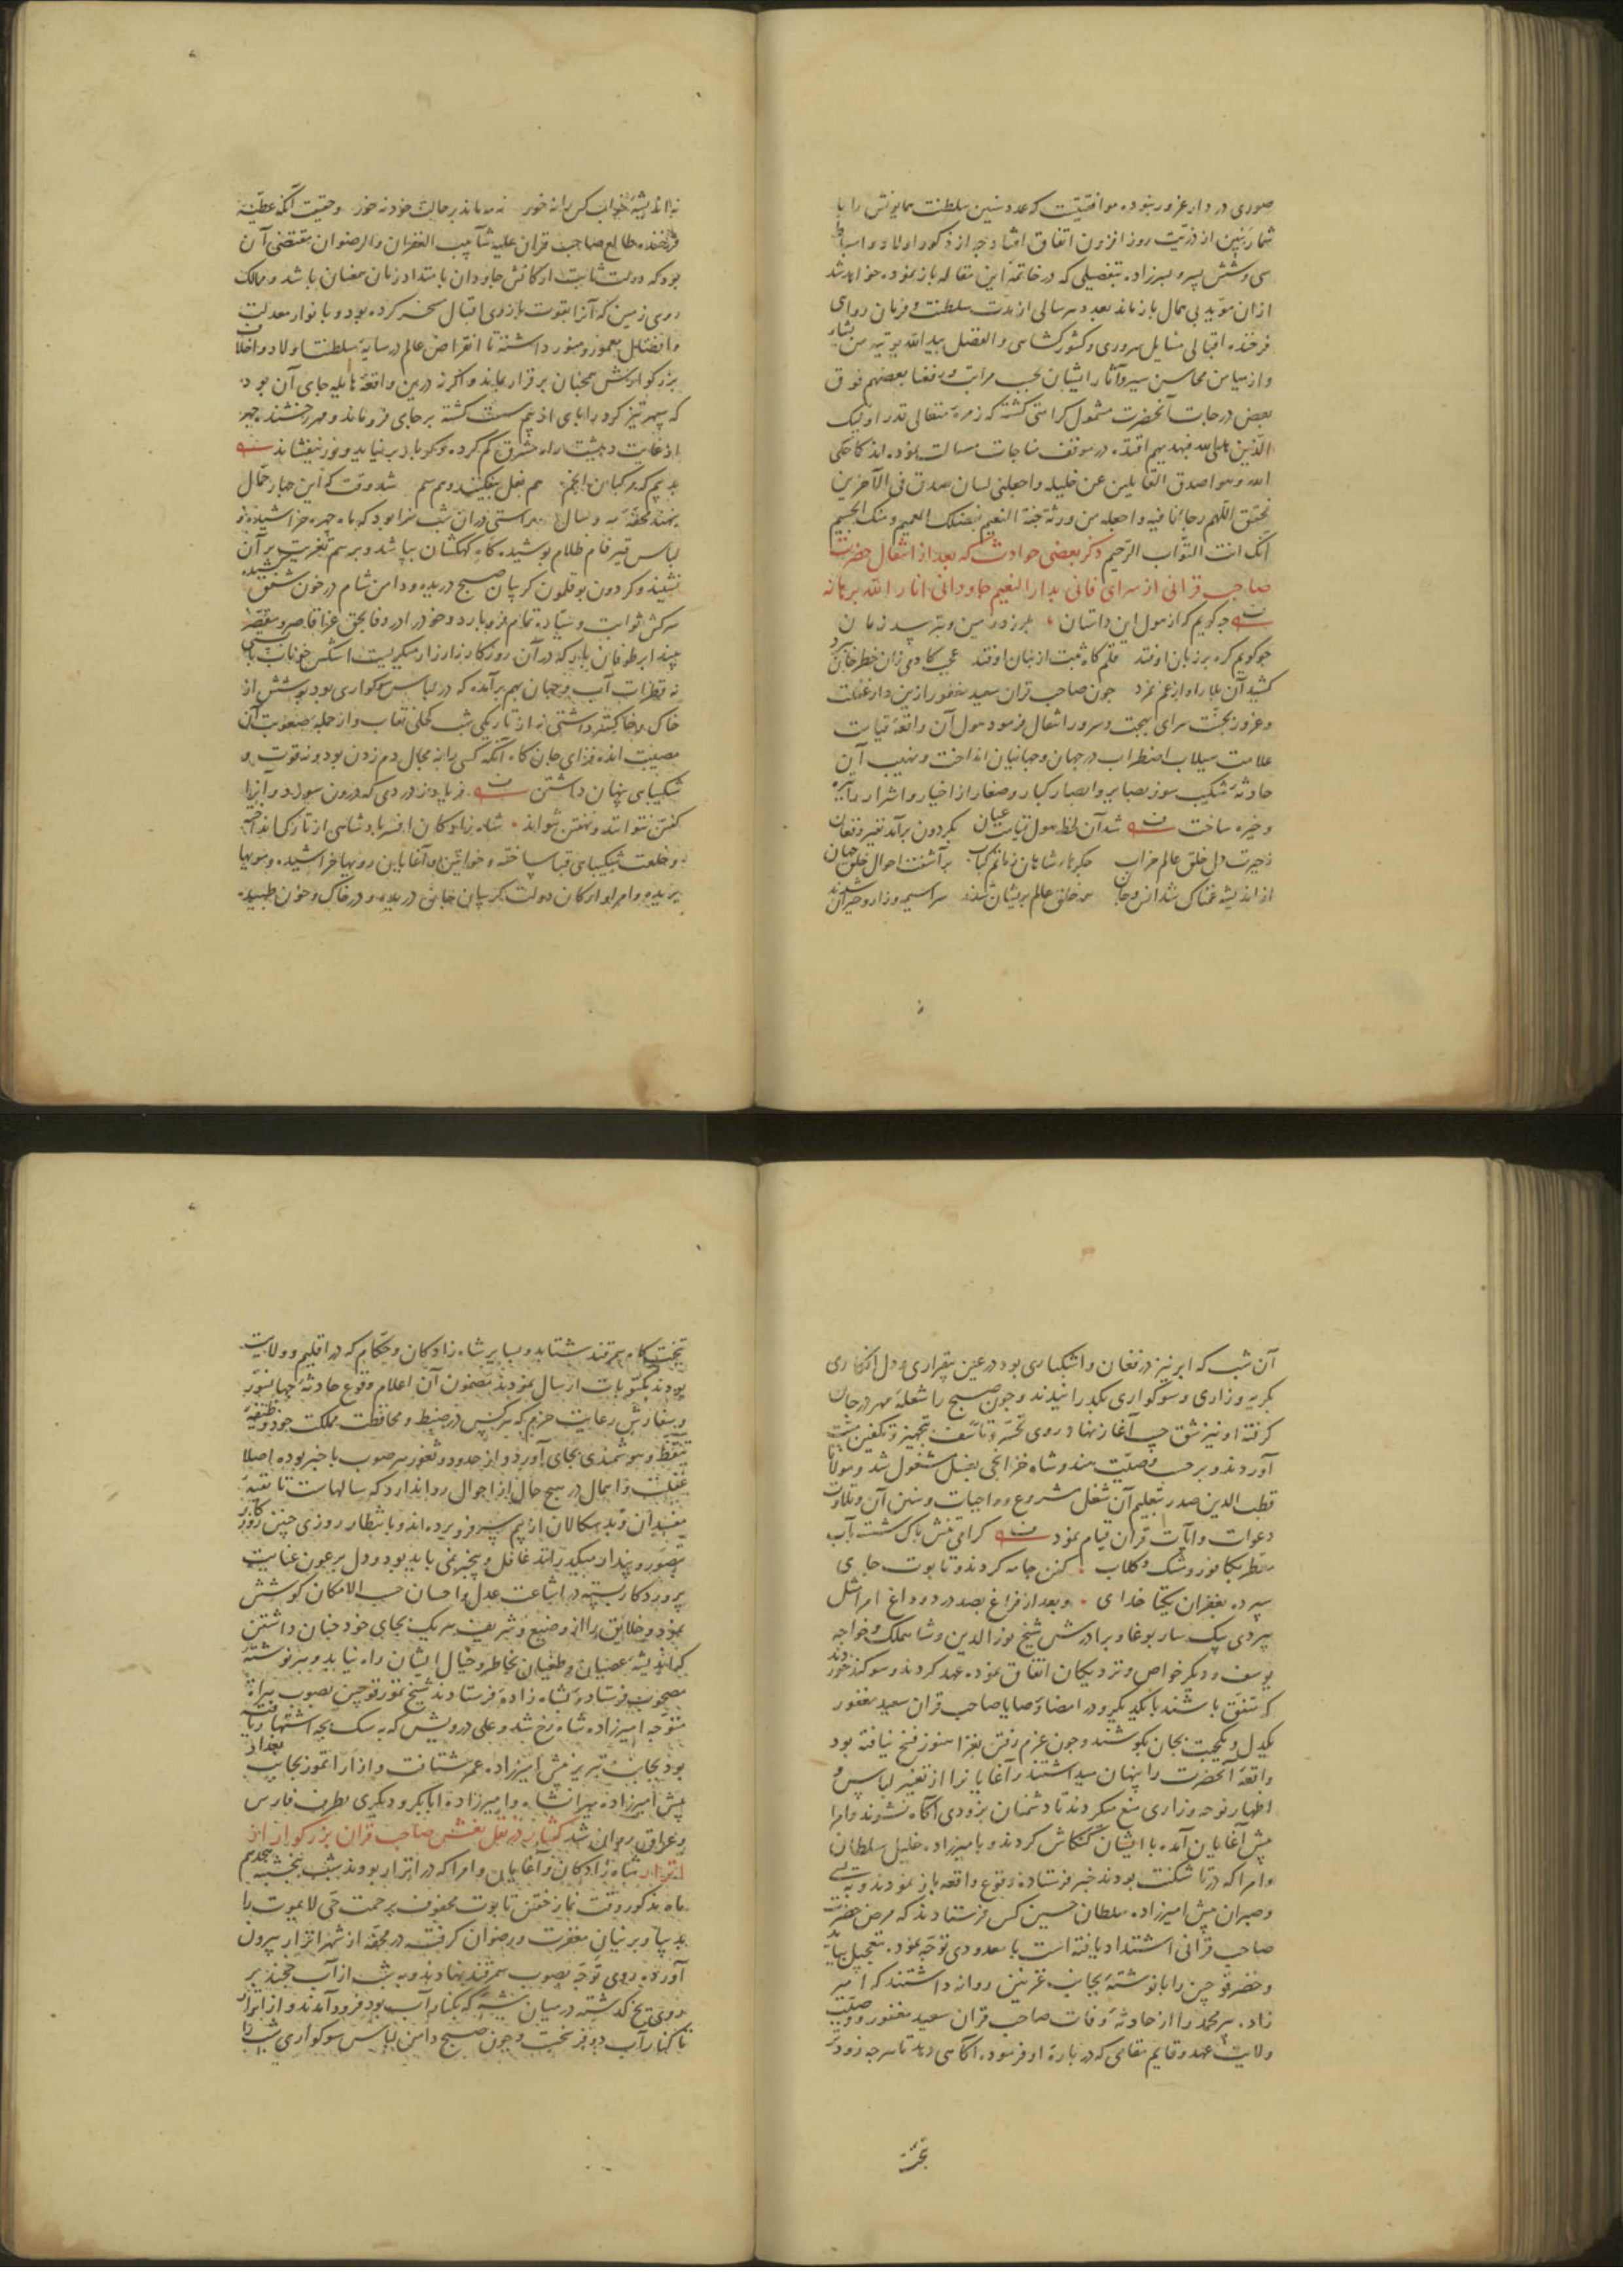 صوری در دار غرور بنود موافقیست که عدد سنین سلطنت همایونش را با
شمار بنین از ذریت روز افزون اتفاق افتاد چه از ذکور اولاد و اسباط
سی و شش پسر و پسرزاده بتفصیلی که در خاتمه این مقاله باز نموده خواهد شد
ازان مؤید بی همال باز ماند بعدد هر سالی از مدت سلطنت و فرمان روای
فرخنده اقبالی شمایل سروری و کشورکشایی والفضل بید الله یوتیه من یشاء
و از میامن محاسن سیر و آثار ایشان بحسب مراتب ورفعنا بعضهم فوق
بعض درجات آنحضرت مشمول کرامتی گشته که زمره متعالی قدر اولیک
الذین هدی الله فبهدیهم اقتده در موقف مناجات مسالت نموده اند کما حکی
الله وهو اصدق القایلین عن خلیله واجعلنی لسان صدق فی الآخرین
تحقق اللهم رجاءنا فیه واجعله من ورثة جنة النعیم بفضلک العمیم ومنک الجسیم
انک انت التواب الرحیم ذکر بعضی حوادث که بعد از انتقال حضرت
صاحب قرانی از سرای فانی بدار النعیم جاودانی انار الله برهانه
چه کویم که از هول این داستان بلرزد زمین و بترسد زمان
چو کویم کره بر زبان اوفتد قلم کاه ثبت از بنان اوفتد
چون صاحب قران سعید مغفور ازین دار غفلت
و غرور بجنت سرای بهجت و سرور انتقال فرمود هول آن واقعه قیامت
علامت سیلاب اضطراب در جهان و جهانیان انداخت و نهیب آن
حادثه شکیب سوز بصایر و ابصار کبار و صغار از اخیار و اشرار را تیره
و خیره ساخت شد آن لحظه هول قیامت عیان بکردون برآمد نفیر و فغان
زحیرت دل خلق عالم خراب جکرها شاهان ز ماتم کباب برآشفت احوال خلق جهان
از اندیشه غمناک شد انس و جان همه خلق عالم پریشان شدند سراسیمه و زار و حیران شدند
نه اندیشه خواب کس را نه خور نه مه ماند بر حالت خود نه خور و حقیقت آنکه عطیه
فرخنده طالع صاحب قران علیه شآبیب الغفران والرضوان مقتضی آن
بود که دولت ثابت ارکانش جاودان با امتداد زمان همعنان باشد و ممالک
روی زمین که آنرا بقوت بازوی اقبال مسخر کرده بود و بانوار معدلت
و افضال معمور و منور داشته تا انقراض عالم در سایه سلطنت اولاد و اخلاف
بزرکوارش همچنان برقرار بماند و اکر نه درین واقعه هایله جای آن بود
که سپهر تیز کرد را پای از بیم سست کشته بر جای فرو ماند و مهر رخشنده چهر
از غایت دهشت راه مشرق کم کرده دیکر بار برنیاید و نور نیفشاند
بد بیم که مرکبان انجم هم نعل بیفکنند و هم سم شد وقت که این چهار حمال
بنهند محفه مه و سال براستی دران شب سزا بود که ماه چهره خراشیده و
لباس قیر فام ظلام پوشیده کاه کهکشان بپاشد و برسم تعزیت بر آن
نشیند و کردون بوقلمون کریبان صبح دریده و دامن شام در خون شفق کشیده
سرشک ثوابت و سیاره تمام فرو بارد و خود را در وفا بحق عزا قاصر و مقصر
بیند ابر طوفان بار که در آن روزکار زار زار میکریست اشکش خوناب بایستی
نه قطرات آب و جهان بهم برآمده که در لباس سوکواری بود پوشش از
خاک و خاکستر داشتی نه از تاریکی شب کحلی نقاب و از جمله صعوبت آن
مصیبت انده فزای جان کاه آنکه کسی را نه مجال دم زدن بود و نه قوت و
شکیبایی پنهان داشتن فریاد ز دردی که درون سوزد و آنرا
کفتن نتوانند و نهفتن نتوانند شاه زادکان افسر پادشاهی از تارک انداخته
و خلعت شکیبایی قبا ساخته و خواتین و آغایان رویها خراشیده و مویها
بریده و امرا و ارکان دولت کریبان جان دریده و در خاک و خون طپیده
آن شب که ابر نیز در فغان و اشکباری بود در عین بیقراری و دل افکاری
بکریه و زاری و سوکواری بگذرانیدند و چون صبح را شعله مهر در جان
کرفته او نیز شق جیب آغاز نهاد روی تحسر و تاسف بتجهیز و تکفین
آوردند و بر حسب وصیت هندوشاه خزانجی بغسل مشغول شد و مولانا
قطب الدین صدر بتعلیم آن شغل مشروع و واجبات و سنن آن و تلاوت
دعوات و آیات قرآن قیام نمود کرامی تنش پاک شسته بآب
معطر بکافور و مشک و کلاب کفن جامه کردند و تابوت جای
سپرده بغفران یکتا خدای و بعد از فراغ بصد درد و داغ امرا مثل
بیردی بیک ساربوغا و برادرش شیخ نور الدین و شاهملک و خواجه
یوسف و دیکر خواص و نزدیکان اتفاق نموده عهد کردند و سوکند خوردند
که متفق باشند با یکدیکر و در امضاء وصایا صاحب قران سعید مغفور
یکدل و یکجهت بجان بکوشند و چون عزم رفتن بغزا هنوز فسخ نیافته بود
واقعه آنحضرت را پنهان میداشتند و آغایانرا از تغییر لباس و
اظهار نوحه و زاری منع میکردند تا دشمنان بزودی آکاه نشوند و امرا
پیش آغایان آمده با ایشان کنکاش کردند و بامیرزاده خلیل سلطان
و امرا که در تاشکنت بودند خبر فرستاده وقوع واقعه باز نمودند و
پیش امیرزاده سلطان حسین کس فرستادند که مرض حضرت
صاحب قرانی اشتداد یافته است با معدودی توجه نموده بتعجیل بیاید
و خضر قوچین را با نوشته بجانب غزنین روانه داشتند که امیر
زاده پیرمحمد را از حادثه وفات صاحب قران سعید مغفور و وصیت
ولایت عهد و قایم مقامی که در باره او فرموده آکاهی دهد تا هرچه زودتر
بتخت
بتختکاه سمرقند شتابد و بسایر شاه زادکان و حکام که در اقلیم و ولایت
بودند مکتوبات ارسال نمودند مضمون آن اعلام وقوع حادثه جهانسوز
و سفارش رعایت حزم که هر کس در ضبط و محافظت مملکت خود وظیفه
تیقظ و هوشمندی بجای آورد و از حدود و ثغور هر صوب با خبر بوده اصلا
غفلت و اهمال در هیچ حال از احوال روا ندارد که سالهاست تا
مفسدان و بدسکالان از بیم سر فرو برده اند و بانتظار روزی چنین روزکار
بتصور و پندار میکذرانند غافل و بیخبر نمی باید بود و دل بر عون عنایت
پروردکار بسته در اشاعت عدل و احسان حسب الامکان کوشش
نمود و خلایق را از وضیع و شریف هر یک بجای خود چنان داشتن
که اندیشه عصیان و طغیان بخاطر و خیال ایشان راه نیابد و هر نوشته
مصحوب فرستاده بشاه زاده فرستادند شیخ تمور قوچین بصوب هراة
متوجه امیرزاده شاهرخ شد و علی درویش که به سک بچه اشتهار یافته
بود بجانب تبریز پیش امیرزاده عمر شتافت و ازارا تمور بجانب بغداد
پیش امیرزاده میرانشاه و امیرزاده ابابکر و دیکری بطرف فارس
و عراق روان شد کفتار در نقل نعش صاحب قران بزرکوار از
اترار شاه زادکان و آغایان و امرا که در اترار بودند شب پنجشنبه هجدهم
ماه مذکور وقت نماز خفتن تابوت محفوف برحمت حی لا یموت را
بدیبا و پرنیان مغفرت و رضوان کرفته در محفه از شهر اترار بیرون
آورده روی توجه بصوب سمرقند نهادند و به شب از آب خجند بر
روی یخ کذشته در میان بیشه که بکنار آب بود فرود آمدند و از اترار
تا کنار آب دو فرسخست و چون صبح دامن لباس سوکواری شب را